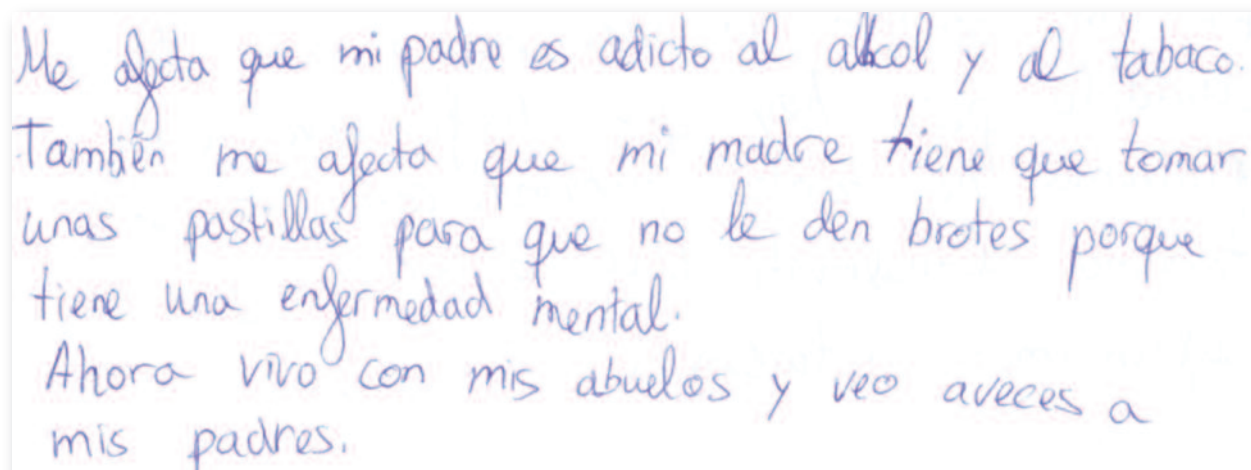 Me afecta que mi padre es adicto al alkcol y al tabaco.
También me afecta que mi madre tiene que tomar
unas pastillas para que no le den brotes porque
tiene una enfermedad mental.
Ahora vivo con mis abuelos y veo aveces a
mis padres.